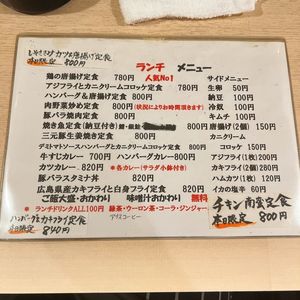 本日限定 800円
ランチ メニュー
鶏の唐揚げ定食 780円 人気No1
アジフライとカニクリームコロッケ定食 780円
ハンバーグ&唐揚げ定食 800円
肉野菜炒め定食 800円(状況によりお時間頂きます)
豚バラ焼肉定食 800円
焼き魚定食(納豆付き)
三元豚生姜焼き定食 800円
デミトマトソースハンバーグとカニクリームコロッケ定食 800円
牛すじカレー 800円 ハンバーグカレー 800円
カツカレー 820円 *各カレー(サラダ小鉢付き)
豚バラスタミナ丼 820円
広島県産カキフライと白身フライ定食 820円
ご飯大盛・おかわり 味噌汁おかわり 無料
*ランチドリンクALL100円 緑茶・ウーロン茶・コーラ・ジンジャー
アイスコーヒー
サイドメニュー
生卵 50円
納豆 100円
冷奴 100円
キムチ 100円
唐揚げ(2個) 150円
カニクリーム
コロッケ 150円
アジフライ(1枚) 150円
カキフライ(2個) 280円
ハムカツ(1枚) 120円
イカの塩辛 60円
チキン南蛮定食
本日限定 800円
ハンバーグとカキフライ定食
本日限定 840円